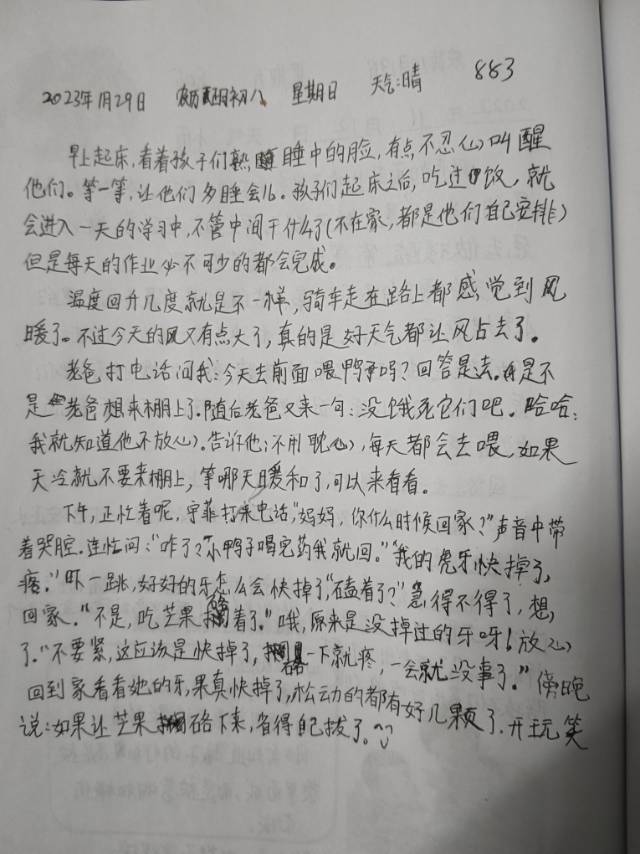 2023年1月29日 农历正月初八 星期日 天气:晴 883
早上起床,看着孩子们熟睡中的脸,有点不忍心叫醒
他们。等一等,让他们多睡会儿。孩子们起床之后,吃过饭,就
会进入一天的学习中,不管中间干什么了(不在家,都是他们自己安排)
但是每天的作业必不可少的都会完成。
温度回升几度就是不一样,骑车走在路上都感觉到风
暖了。不过今天的风又有点大了,真的是好天气都让风占去了。
老爸打电话问我:今天去前面喂鸭子吗?回答是去。是不
是老爸想来棚上了。随后老爸又来一句:没饿死它们吧。哈哈:
我就知道他不放心。告诉他:不用耽心,每天都会去喂,如果
天冷就不要来棚上,等哪天暖和了,可以来看看。
下午,正忙着呢,宁菲打来电话,"妈妈,你什么时候回家?"声音中带
着哭腔。连忙问:"咋了?小鸭子喝完药我就回。""我的虎牙快掉了,
疼。"吓一跳,好好的牙怎么会快掉了"磕着了?"急得不得了,想,
回家。"不是,吃芒果硌着了。"哦,原来是没掉过的牙呀!放心
了。"不要紧,这应该是快掉了,硌一下就疼,一会就没事了。"傍晚
回到家看看她的牙,果真快掉了,松动的都有好几颗了.开玩笑
说:如果让芒果硌下来,省得自己拔了。